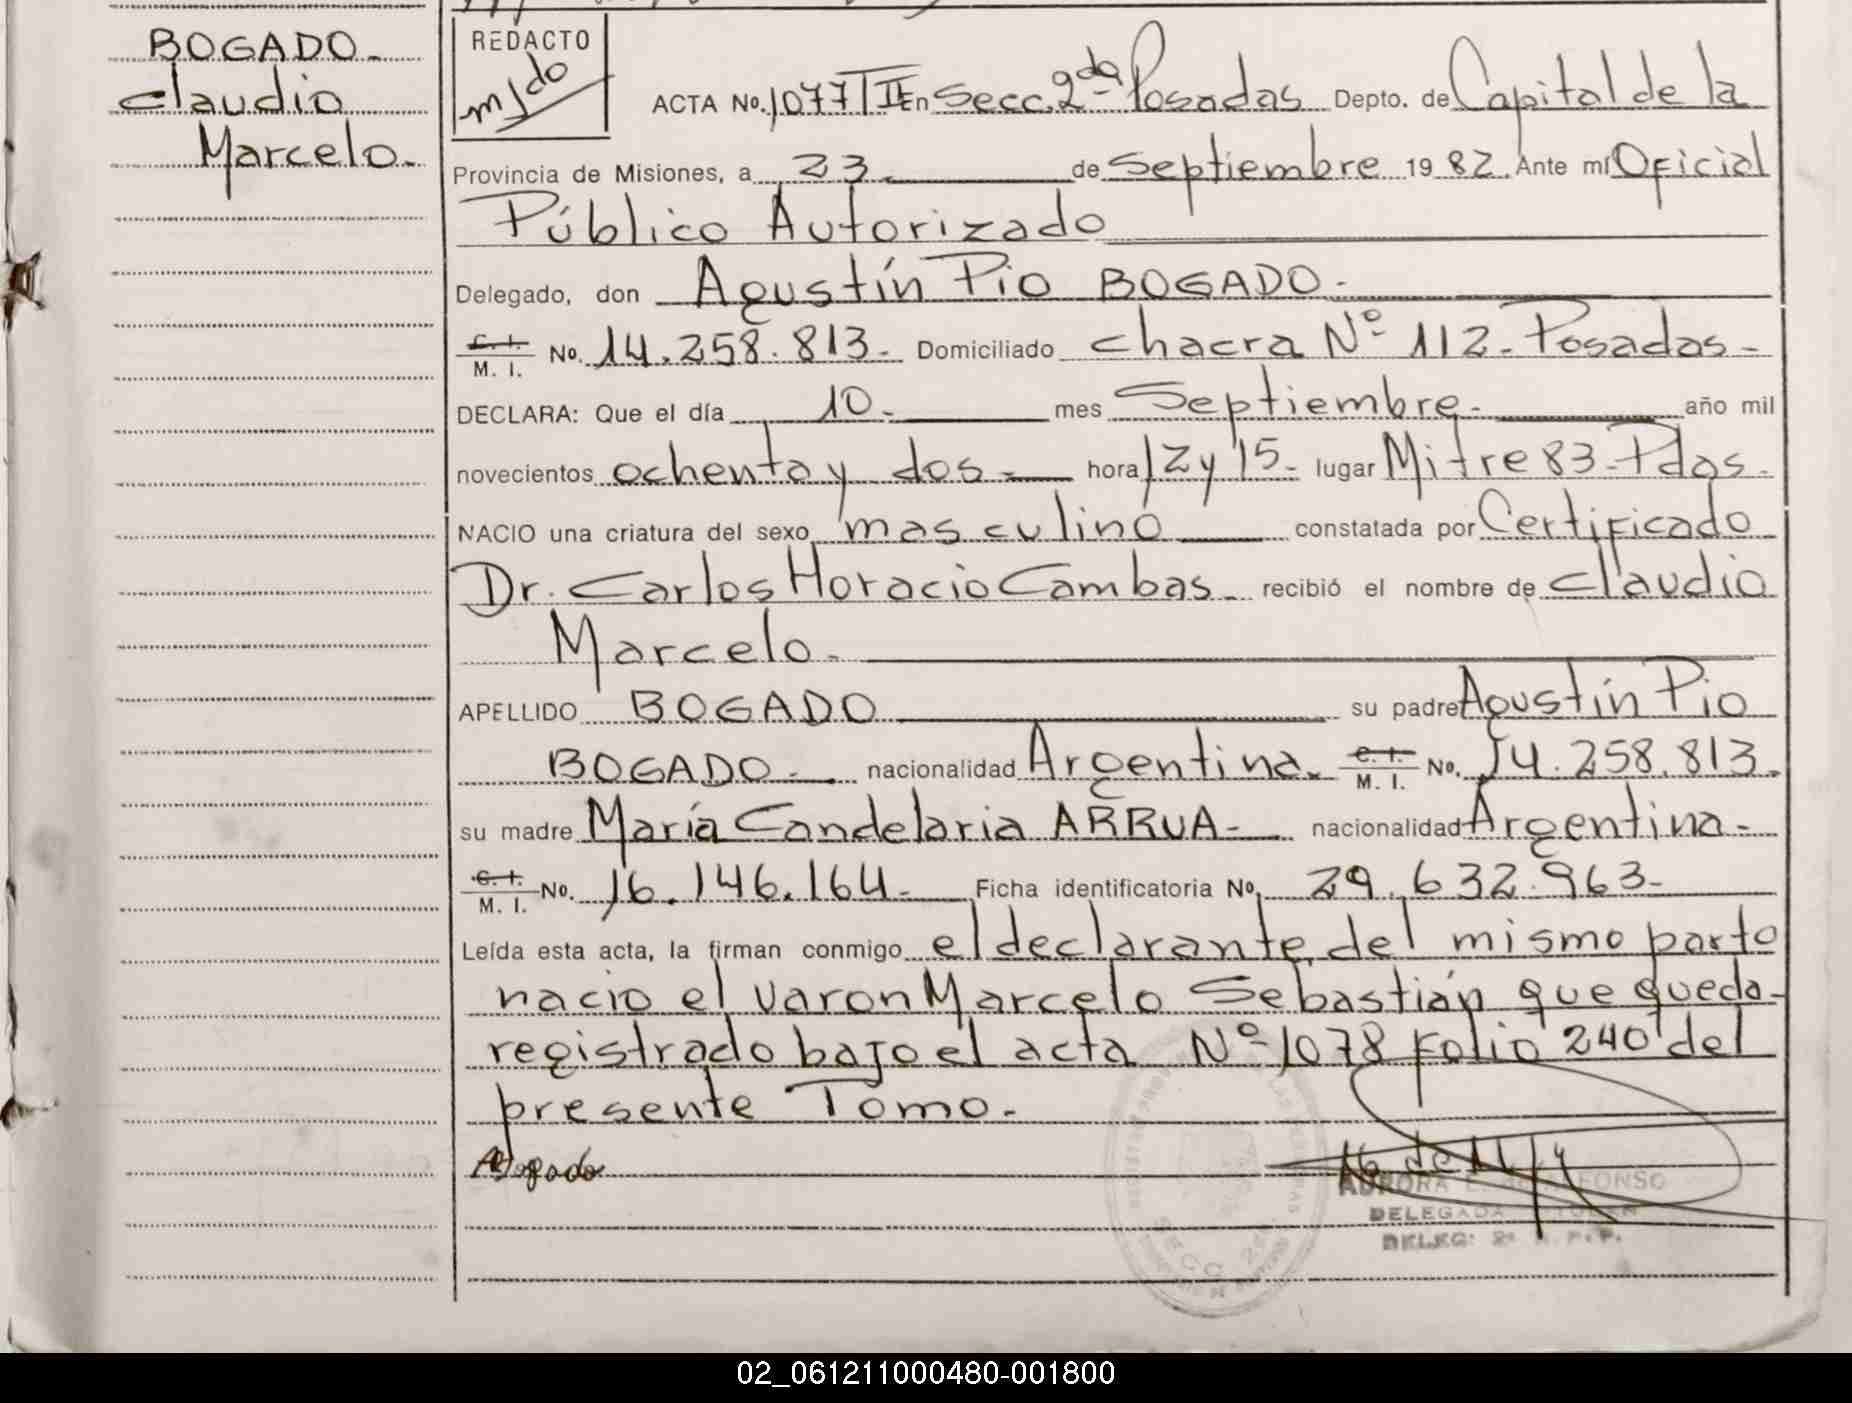 BOGADO.
Claudio
Marcelo.
REDACTO
ACTA No. 1077/II En Secc. 2da Posadas Depto. de Capital de la
Provincia de Misiones, a 23 de Septiembre 1982. Ante mí Oficial
Público Autorizado
Delegado, don Agustín Pio BOGADO.
C. I. M. I. No. 14.258.813. Domiciliado chacra Nº 112. Posadas.
DECLARA: Que el día 10. mes Septiembre. año mil
novecientos ochenta y dos. hora 12 y 15. lugar Mitre 83. Pdas.
NACIO una criatura del sexo masculino constatada por Certificado
Dr. Carlos Horacio Cambas. recibió el nombre de Claudio
Marcelo.
APELLIDO BOGADO su padre Agustín Pio
BOGADO. nacionalidad Argentina. C. I. M. I. No. 14.258.813.
su madre María Candelaria ARRUA. nacionalidad Argentina.
C. I. M. I. No. 16.146.164. Ficha identificatoria No. 29.632.963.
Leída esta acta, la firman conmigo el declarante, del mismo parto
nacio el varon Marcelo Sebastián que queda
registrado bajo el acta Nº 1078 Folio 240 del
presente Tomo.
SECC. 2da.
DELEGADA TITULAR
02_061211000480-001800